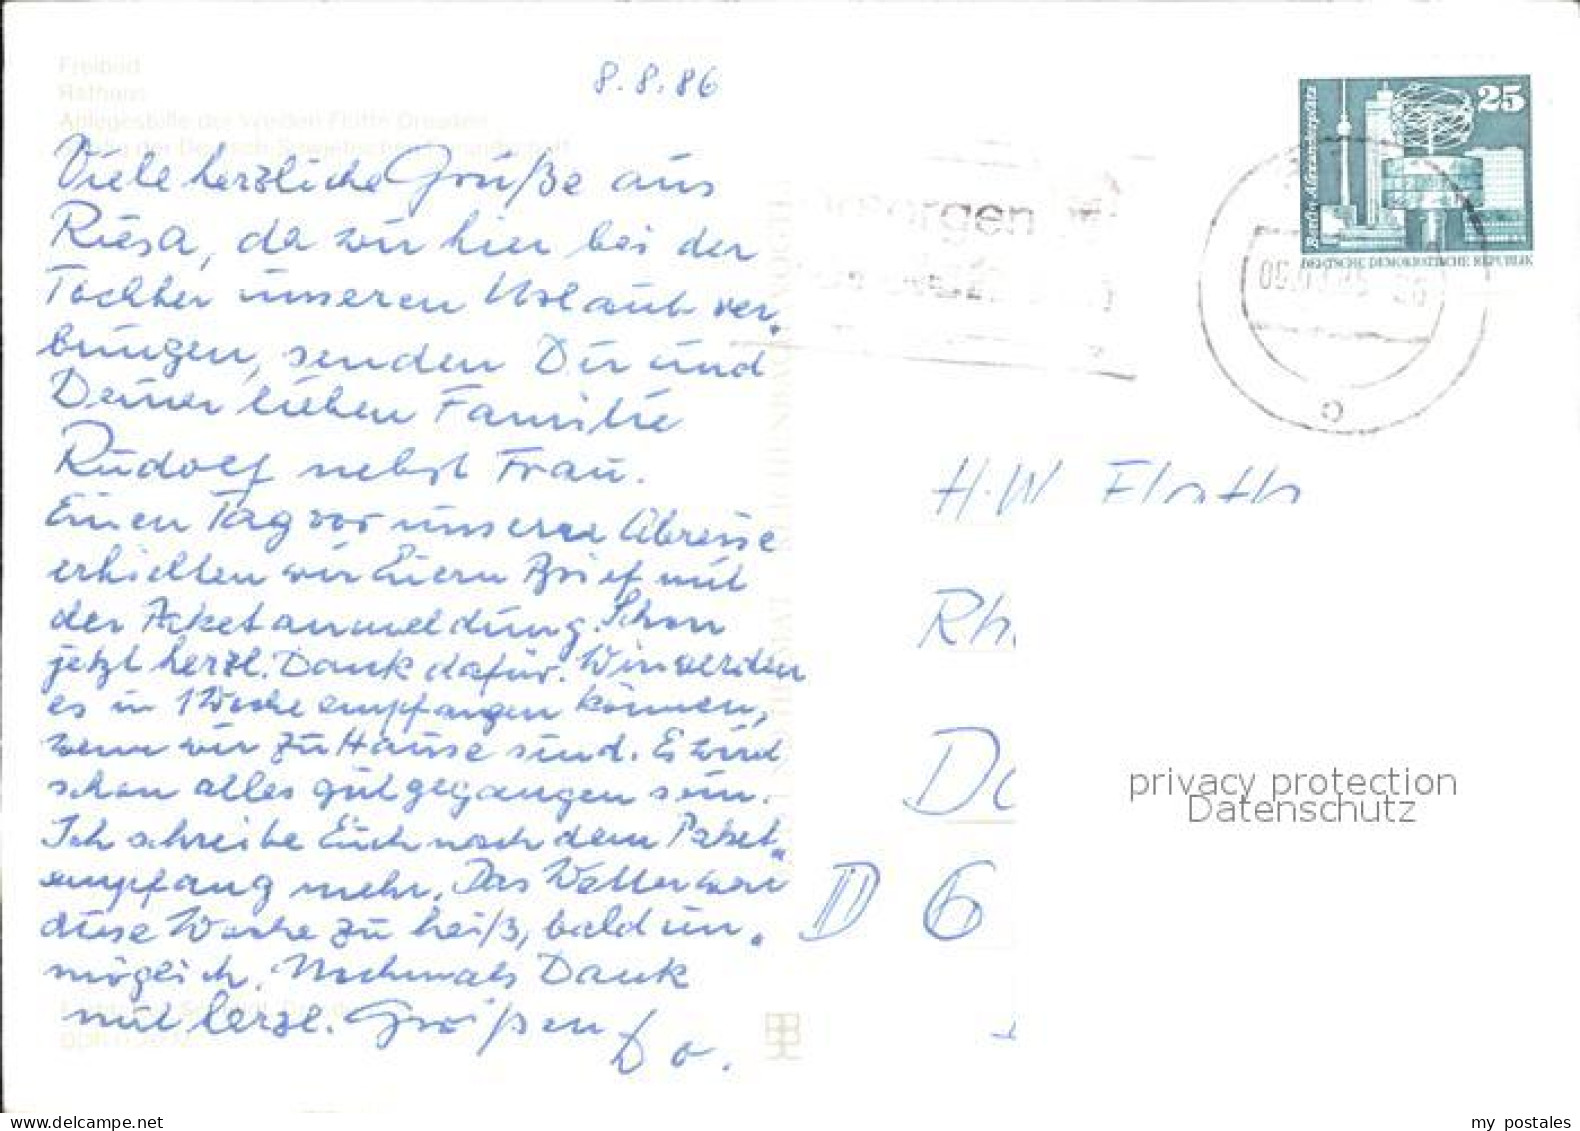 Freibad
Rathaus
Anlegestelle der Weißen Flotte Dresden
der Deutsch-Sowjetischen Freundschaft
8.8.86
Viele herzliche Grüße aus
Riesa, da wir hier bei der
Tochter unseren Urlaub ver-
bringen, senden Dir und
Deiner lieben Familie
Rudolf nebst Frau.
Einen Tag vor unserer Abreise
erhielten wir Euern Brief mit
der Paketanmeldung. Schon
jetzt herzl. Dank dafür. Wir werden
es in 1 Woche empfangen können,
wenn wir zu Hause sind. Es wird
schon alles gut gegangen sein.
Ich schreibe Euch nach dem Paket-
empfang mehr. Das Wetter war
diese Woche zu heiß, bald un-
möglich. Nochmals Dank
mit herzl. Grüßen
25
Berlin, Alexanderplatz
DEUTSCHE DEMOKRATISCHE REPUBLIK
c
H.W. Flath
Rh
D 6
privacy protection
Datenschutz
my postales